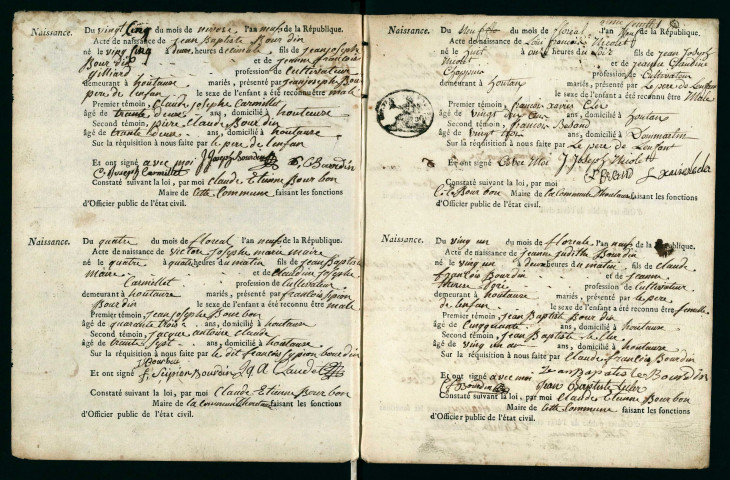 Naissance. Du vingt Cinq du mois de nivose l'an neuf de la République.
Acte de naissance de jean Baptiste Bourdin
né le vingt Cinq à heures fils de jean joseph
Bourdin et de jeanne
Gilliard profession de Cultivateur
demeurant à houtaure mariés, présenté par jean joseph Bour
pere de lenfan le sexe de l'enfant a été reconnu être male
Premier témoin, Claude Joseph Carmillet
âgé de trante deux ans, domicilié à houtaure
Second témoin, piere Claude Bourdin
âgé de trante deux ans, domicilié à houtaure
Sur la réquisition à nous faite par le pere de lenfan
Et ont signé avec moi J Joseph Bourdin
C. Joseph Carmillet P. C Bourdin
Constaté suivant la loi, par moi Claude Etienne Bourbon
Maire de Cette Commune faisant les fonctions
d'Officier public de l'état civil.
Naissance. Du quatre du mois de floreal l'an neuf de la République.
Acte de naissance de victor joseph marie maire
né le quatre à quatre heures du matin fils de jean Baptiste
maire et de Claudine josephe
Carmillet profession de Cultivateur
demeurant à houtaure mariés, présenté par francois
Bourdin le sexe de l'enfant a été reconnu être male
Premier témoin, jean joseph Bourbon
âgé de quarante trois ans, domicilié à houtaure
Second témoin, jacque antoine claude
âgé de trante sept ans, domicilié à houtaure
Sur la réquisition à nous faite par le dit francois bourdin
J Bourbon
Et ont signé f. Scipion Bourdin J A Claudet
Constaté suivant la loi, par moi Claude Etienne Bourbon
Maire de la commune faisant les fonctions
d'Officier public de l'état civil.
Naissance. Du neuf du mois de floreal l'an neuf de la République.
Acte de naissance de Loui francois Nicolet
né le huit à onze heures du soir fils de jean Joseph
Nicolet et de jeanne Claudine
profession de Cultivateur
demeurant à houtau mariés, présenté par Le pere de Lenfant
le sexe de l'enfant a été reconnu être Male
Premier témoin, francois xavier Cler
âgé de vingt ans, domicilié à houtau
Second témoin, francois
âgé de vingt trois ans, domicilié à Dommartin
Sur la réquisition à nous faite par Le pere de Lenfant
Et ont signé avec Moi J Joseph Nicolet
Constaté suivant la loi, par moi
C. E Bourbon Maire de la commune houtaure faisant les fonctions
d'Officier public de l'état civil.
Naissance. Du vingt un du mois de floreale l'an neuf de la République.
Acte de naissance de jeanne judithe Bourdin
né le vingt un à deux heures du matin fils de claude
francois Bourdin et de jeanne
therese profession de Cultivateur
demeurant à houtaure mariés, présenté par le pere
de lenfan le sexe de l'enfant a été reconnu être femelle
Premier témoin, jean Baptiste Bourdin
âgé de Cinquante ans, domicilié à houtaure
Second témoin, jean Baptiste
âgé de vingt un ans, domicilié à houtaure
Sur la réquisition à nous faite par Claude francois Bourdin
Et ont signé avec moi Jean Bapatiste Bourdin
Bourdin Jean Baptiste
Constaté suivant la loi, par moi Claude Etienne Bourbon
Maire de Cette Commune faisant les fonctions
d'Officier public de l'état civil.